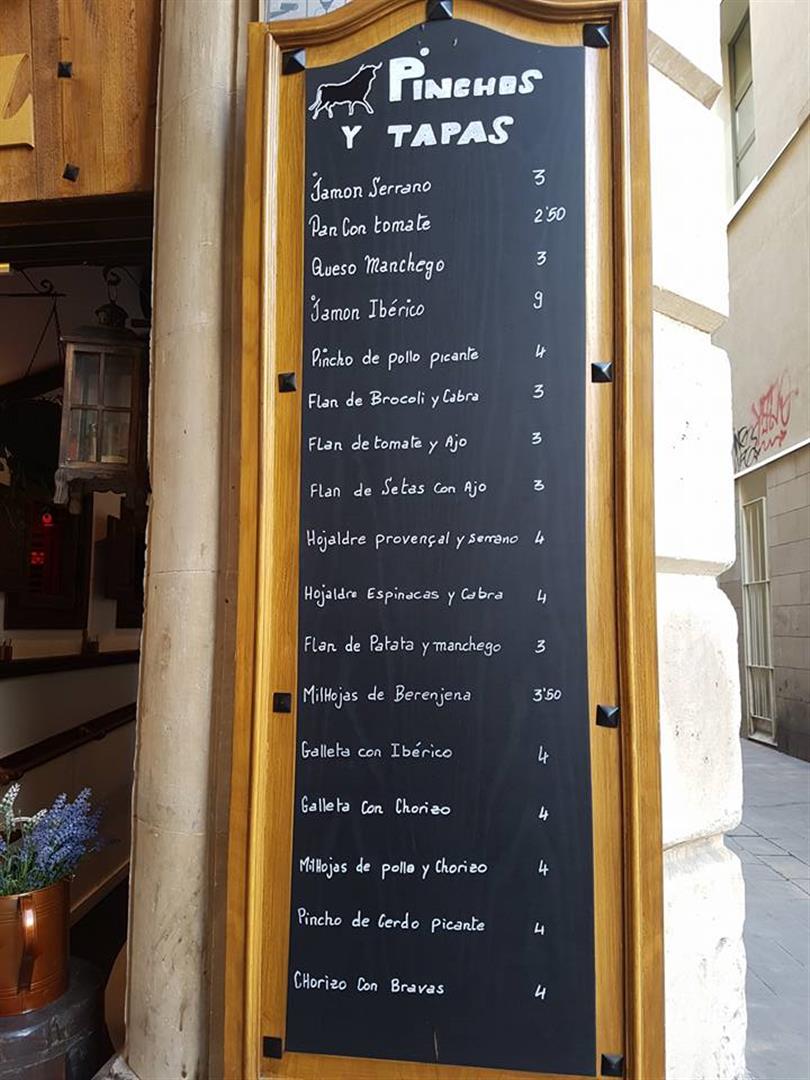 Pinchos
y tapas
Jamon Serrano 3
Pan Con tomate 2'50
Queso Manchego 3
Jamon Ibérico 9
Pincho de pollo picante 4
Flan de Brocoli y Cabra 3
Flan de tomate y Ajo 3
Flan de Setas con Ajo 3
Hojaldre provençal y serrano 4
Hojaldre Espinacas y Cabra 4
Flan de Patata y manchego 3
MilHojas de Berenjena 3'50
Galleta con Ibérico 4
Galleta Con Chorizo 4
MilHojas de pollo y Chorizo 4
Pincho de Cerdo picante 4
CHorizo Con Bravas 4